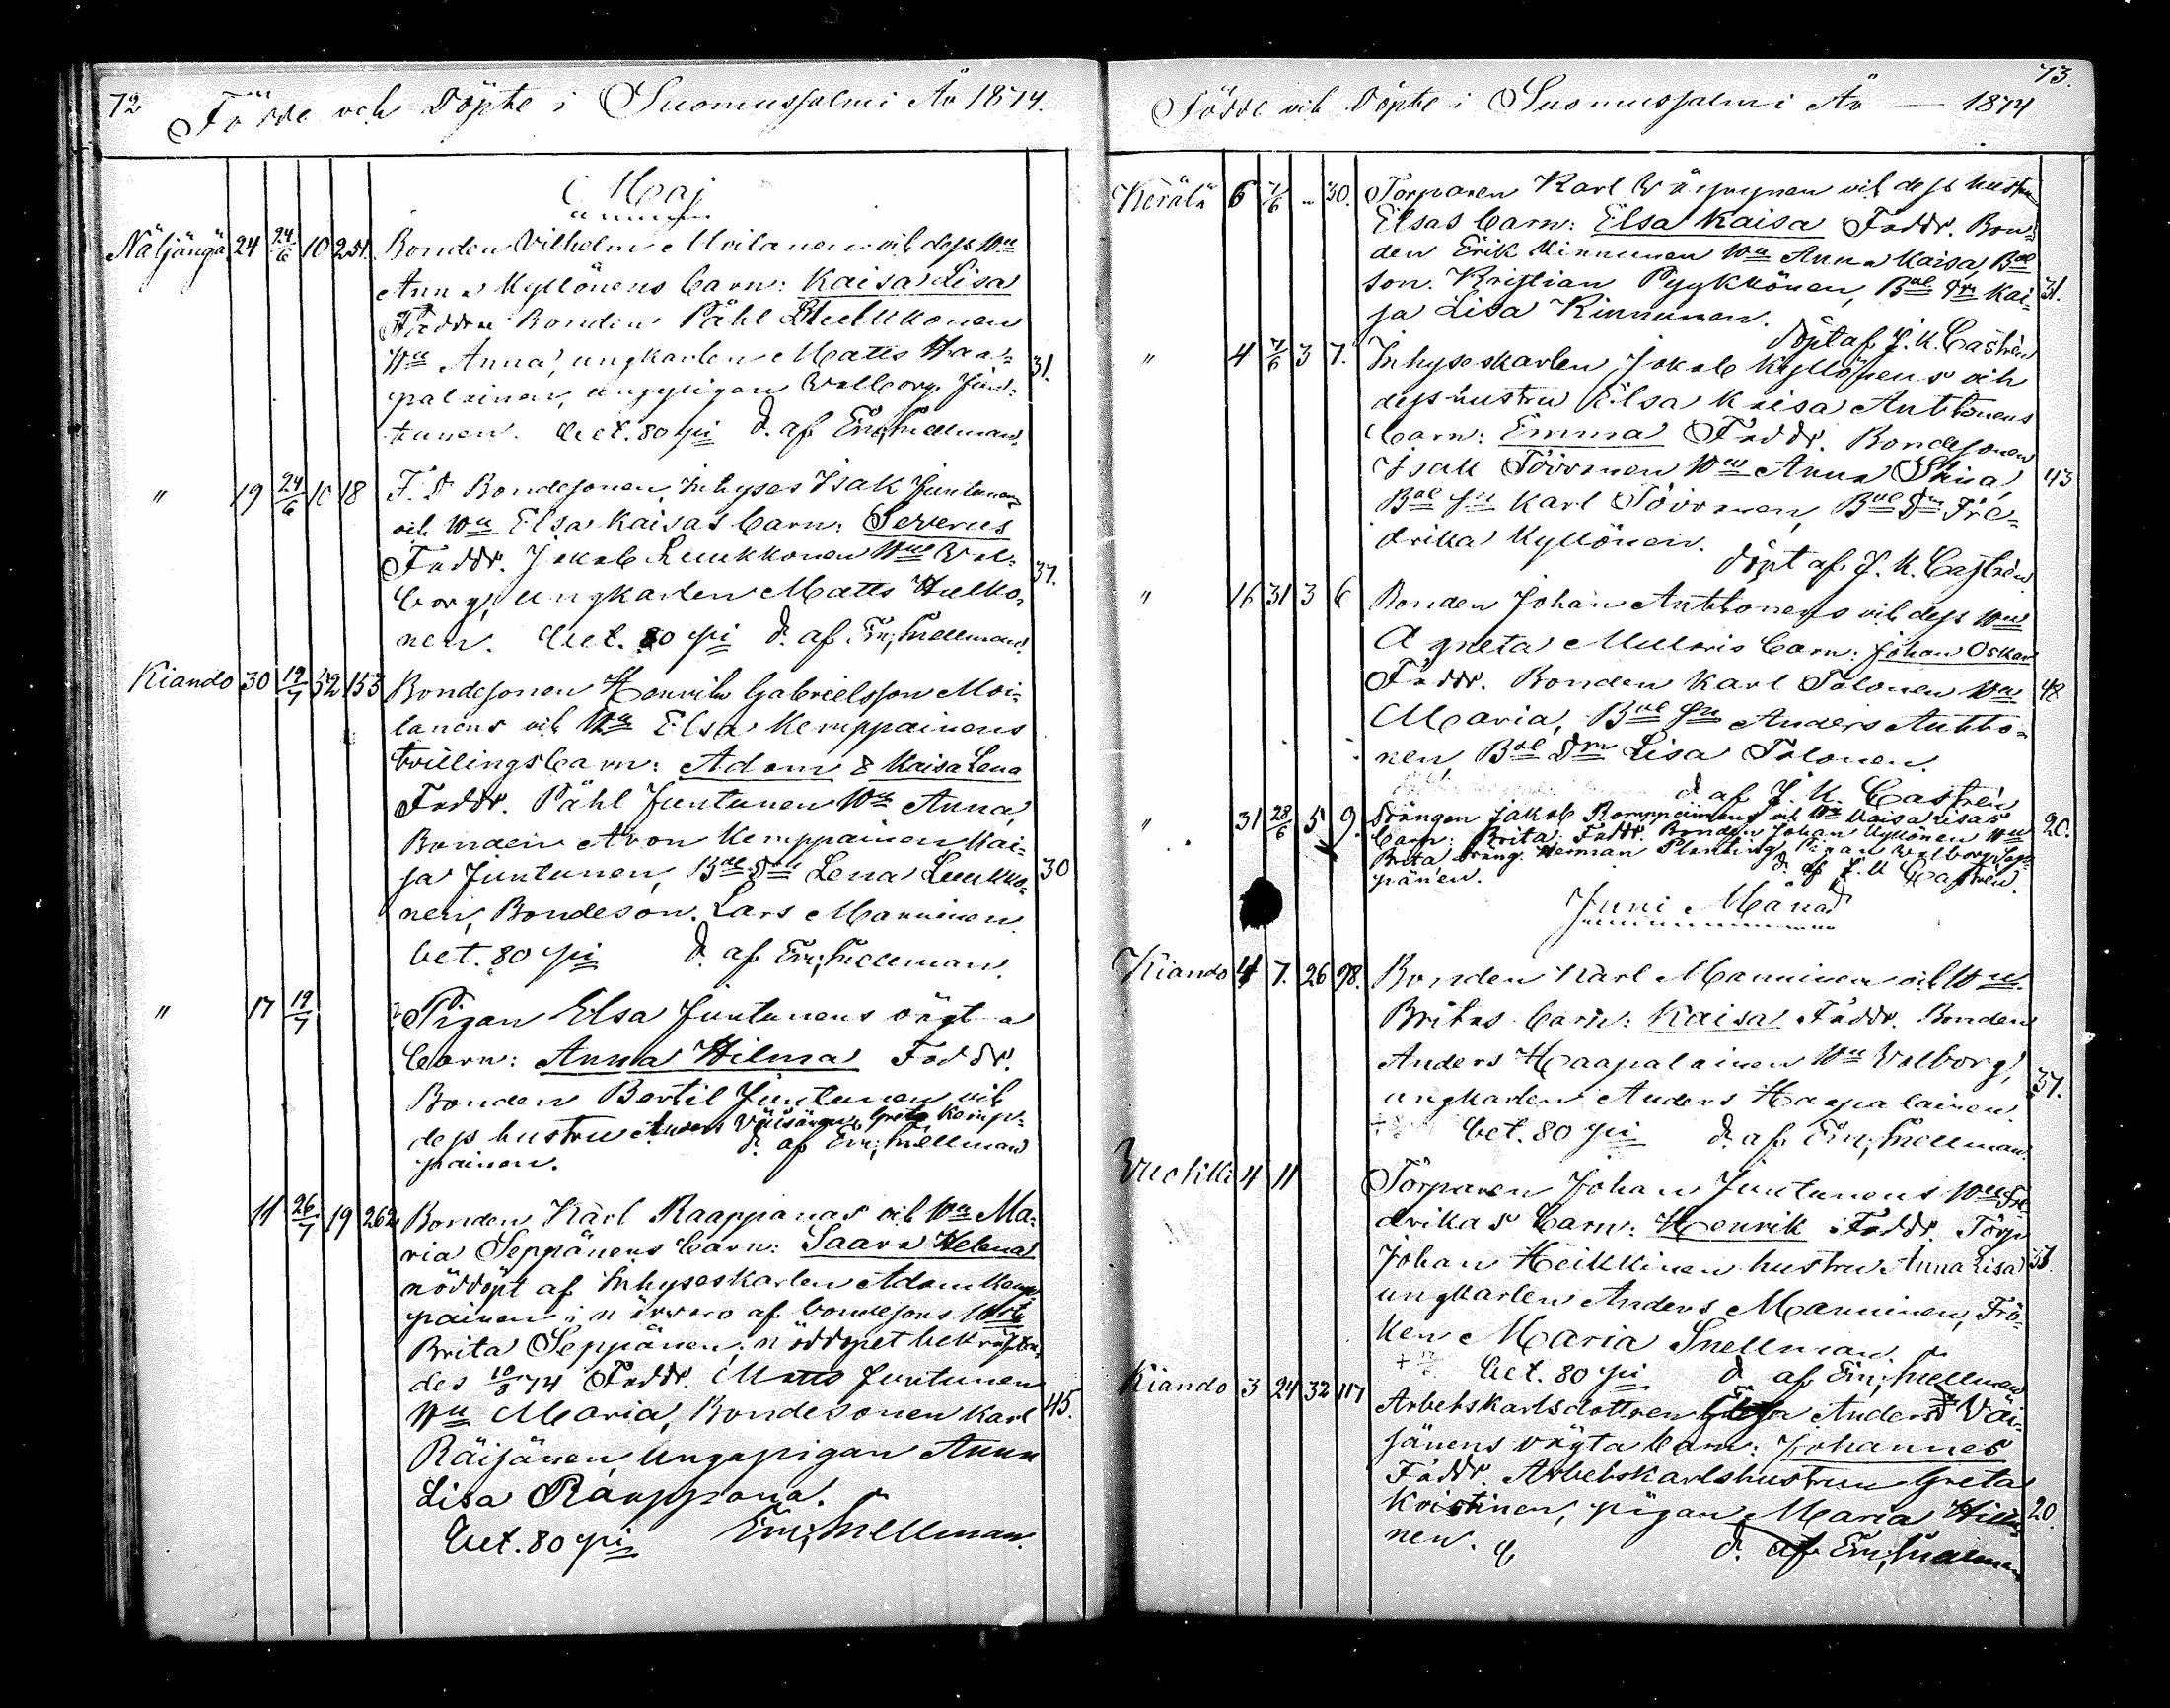 72 Födde och Döpte i Suomussalmi År 1874.
Maj
Näljängä 24 24/6 10 251. Bonden Vilhelm Moilanen och dess Hu
Anna Kyllönens barn: Kaisa Lisa
Faddr. Bonden Påhl Luukkonen
Hu Anna, ungkarlen Matts Haa-
palainen, ungpigan Walborg Jun- 31.
tunen. bet. 80 pi d. af Em. Snellman.
" 19 24/6 10 18 F. d. Bondesonen, Inhyses Isak Juntunens
och Hu Elsa Kaisas barn: Severus
Faddr. Jakob Luukkonen Hu Wal- 37.
borg, ungkarlen Matts Hulko-
nen. bet. 80 pi d. af Em. Snellman.
Kiando 30 19/7 52 153 Bondesonen Henrik Gabrielsson Moi-
lanens och Hu Elsa Kemppainens
tvillingsbarn: Adam & Kaisa Lena
Faddr. Påhl Juntunen Hu Anna,
Bonden Aron Kemppainen Kai-
sa Juntunen, Bde Dr Lena Luukko- 30
nen, Bondeson. Lars Manninen.
bet. 80 pi d. af Em. Snellman.
" 17 19/7 Pigan Elsa Juntunens oägta
barn: Anna Hilma Faddr.
Bonden Bertil Juntunen och
dess hustru Anders Väisänen, Greta Kemp-
painen. d. af Em. Snellman
11 26/7 19 262 Bonden Karl Raappanas och Hu Ma-
ria Seppänens barn: Saara Helena
nöddöpt af Inhyseskarlen Adam Kemp-
painen i närvaro af bondesons
Brita Seppänen; nöddopet bekräfta-
des 10/8 74 Faddr. Matts Juntunen
Hu Maria, Bondesonen Karl 45.
Räisänen, Ungapigan Anna
Lisa Raappana.
bet. 80 pi Em. Snellman.
73.
Födde och Döpte i Suomussalmi År — 1874
Kerälä 6 7/6 " 30. Torparen Karl Väyrynen och dess hustru
Elsas barn: Elsa Kaisa Faddr. Bon-
den Erik Kinnunen Hu Anna Kaisa, Bde
son. Kristian Pyykkönen, Bde Dr Kai- 31.
sa Lisa Kinnunen.
Döpt af J. K. Castrén
" 4 7/6 3 7. Inhyseskarlen Jakob Kyllönens och
dess hustru Elsa Kaisa Anttonens
barn: Emma Faddr. Bondesonen
Isak Tóivonen Hu Anna Stina, 43
Bde Sn Karl Toivonen, Bde Dr Fre-
drika Kyllönen.
Döpt af J. K. Castrén
" 16 31 3 6 Bonden Johan Anttonens och dess Hu
A greta Mularis barn: Johan Oskar
Faddr. Bonden Karl Tolonen Hu 48
Maria, Bde Sn Anders Antto-
nen, Bde Dr Lisa Tolonen.
d af J. K. Castrén
" 31 28/6 5 9. Drängen Jakob Romppainens och Hu Kaisa Lisas
barn: Brita Faddr. Bonden Johan Kyllönen Hu 20.
Brita Dräng. Herman Planting, Pigan Walborg Sep-
pänen. d. af J. K Castrén.
Juni Månad
Kiando 4 7. 26 98. Bonden Karl Manninen och Hu
Britas barn: Kaisa Faddr. Bonden
Anders Haapalainen Hu Valborg,
ungkarlen Anders Haapalainen 37.
bet. 80 pi d. af Em. Snellman.
Vuokki 4 11 Torparen Johan Juntunens Hu Fre-
drikas barn: Henrik Faddr. Torp
Johan Heikkinen hustru Anna Lisa
ungkarlen Anders Manninen, Frö-
ken Maria Snellman.
bet. 80 pi d af Em. Snellman
Kiando 3 24 32 117 Arbetskarlsdottren Anders Väi-
sänens oägta barn: Johannes
Faddr. Arbetskarlshustrun Greta
Kristinen, pigan Maria Hilli- 20.
nen. d. af Em. Snellman